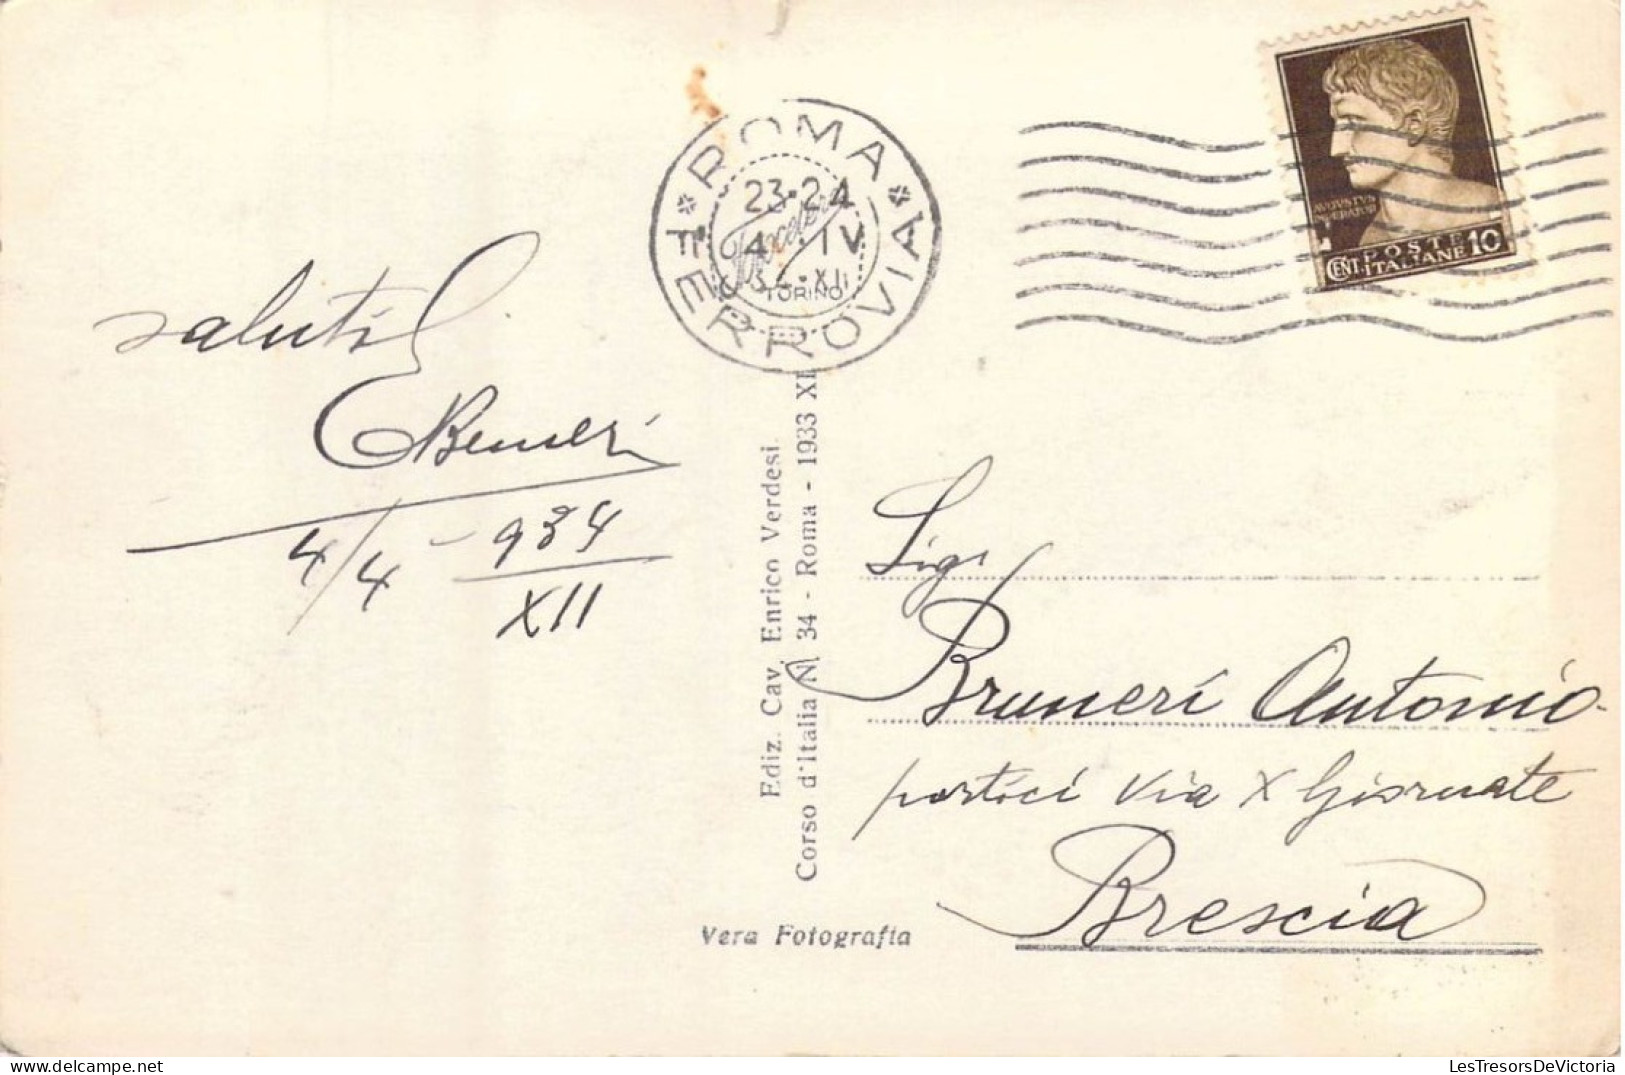 saluti
4/4 - 934
XII
ROMA FERROVIA
23·24
4·IV
34·XII
TORINO
AVGVSTVS
IMPERATOR
CENT. POSTE ITALIANE 10
Ediz. Cav. Enrico Verdesi.
Corso d'Italia N. 34 - Roma - 1933 XI
Sigr
Bruneri Antonio
portici Via X Giornate
Brescia
Vera Fotografia
LesTresorsDeVictoria
https://www.delcampe.net